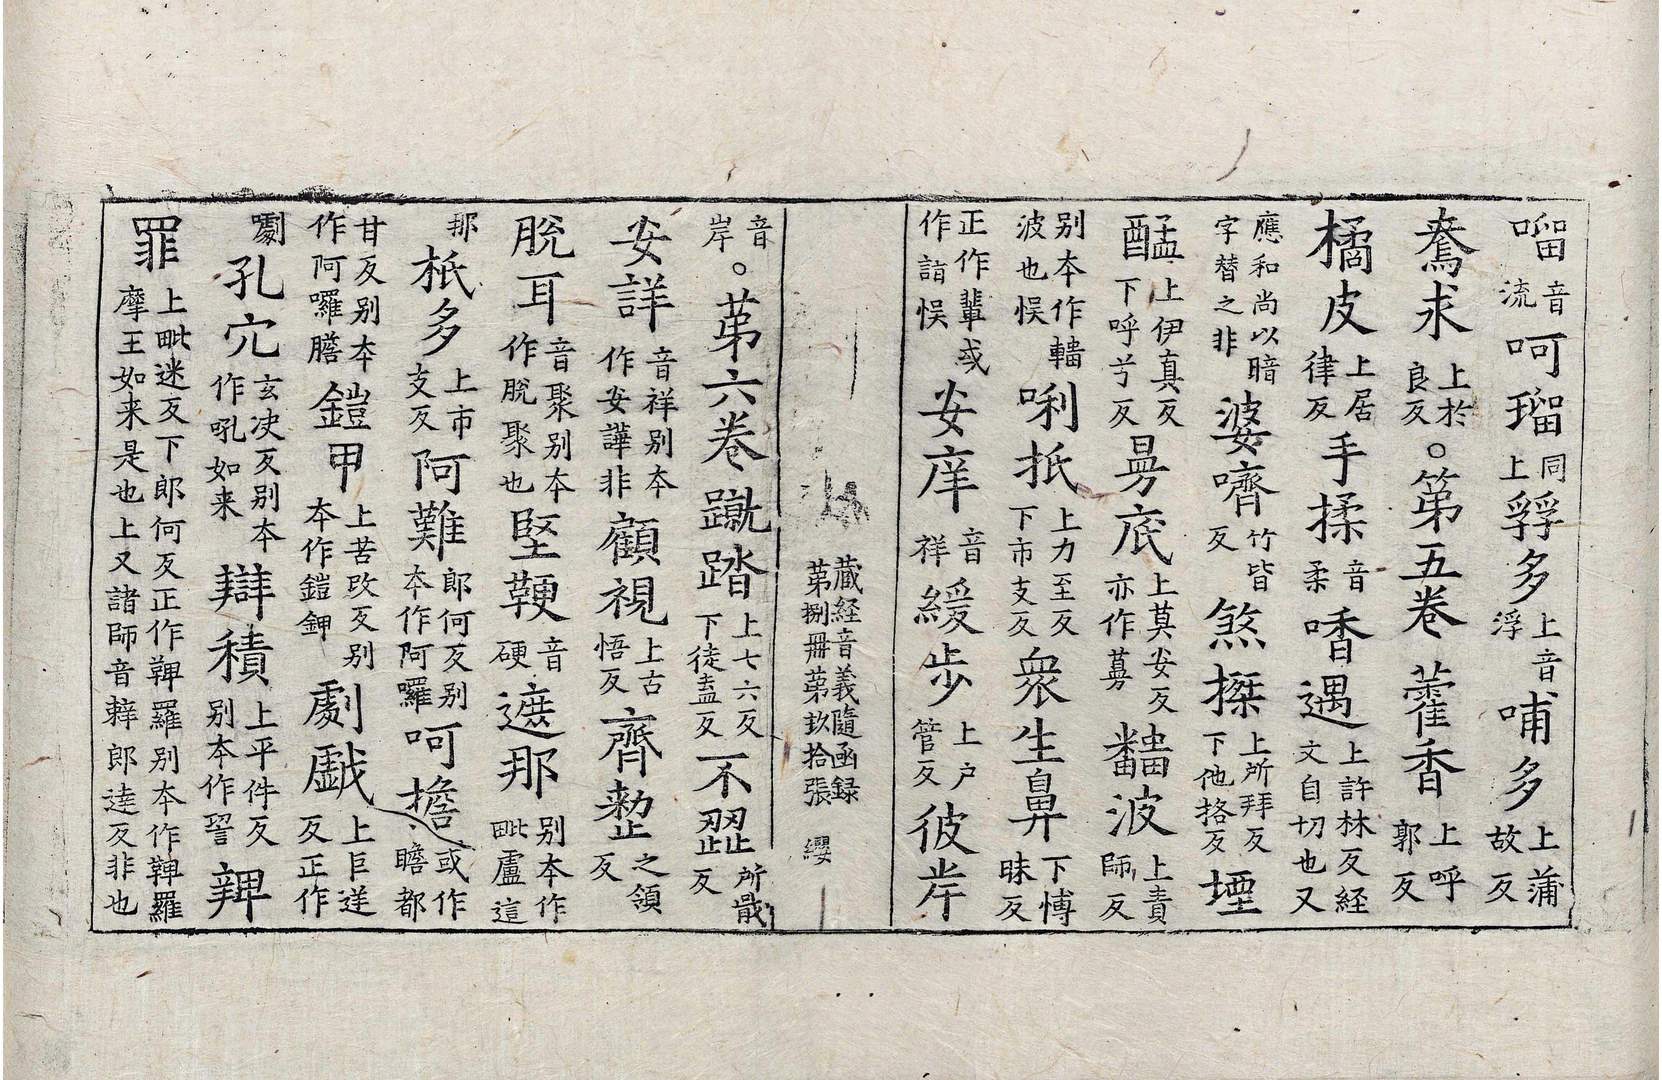 㗜音流呵瑠同上孵多上音浮哺多上蒲故反
鴦求上於良反。第五卷藿香上呼郭反
橘皮上居律反手揉音柔嗜遇上許林反経文自切也又
應和尚以暗字替之非婆嚌竹皆反煞搩上所拜反下他挌反堙
醘上伊真反下呼兮反昺底上莫安反亦作蔓波上責師反
别夲作轖波也悮唎抵上力至反下市支反衆生鼻下愽昧反
正作輩或作詣悮安庠音祥緩步上户管反彼岸
藏経音義隨函録第捌冊第玖拾張 纓
音岸。第六卷蹴踏上七六反下徒盍反不歰所戢反
安詳音祥别夲作安譁非顧視上古悟反齊整之領反
脫耳音聚别夲作脫聚也堅鞕音硬遮那别夲作毗盧這
那 柢多上市支反阿難郎何反别夲作阿囉呵擔或作瞻都
甘反别夲作阿囉膽鎧甲上苦改反别夲作鎧鉀劇戱上巨逆反正作
劇孔穴玄决反别夲作吼如来辯積上平件反别夲作辝鞞
罪上毗迷反下郎何反正作鞞羅别夲作鞞羅摩王如来是也上又諸師音辢郎達反非也